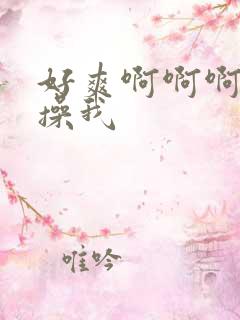 好爽啊啊啊
操我
唯吟